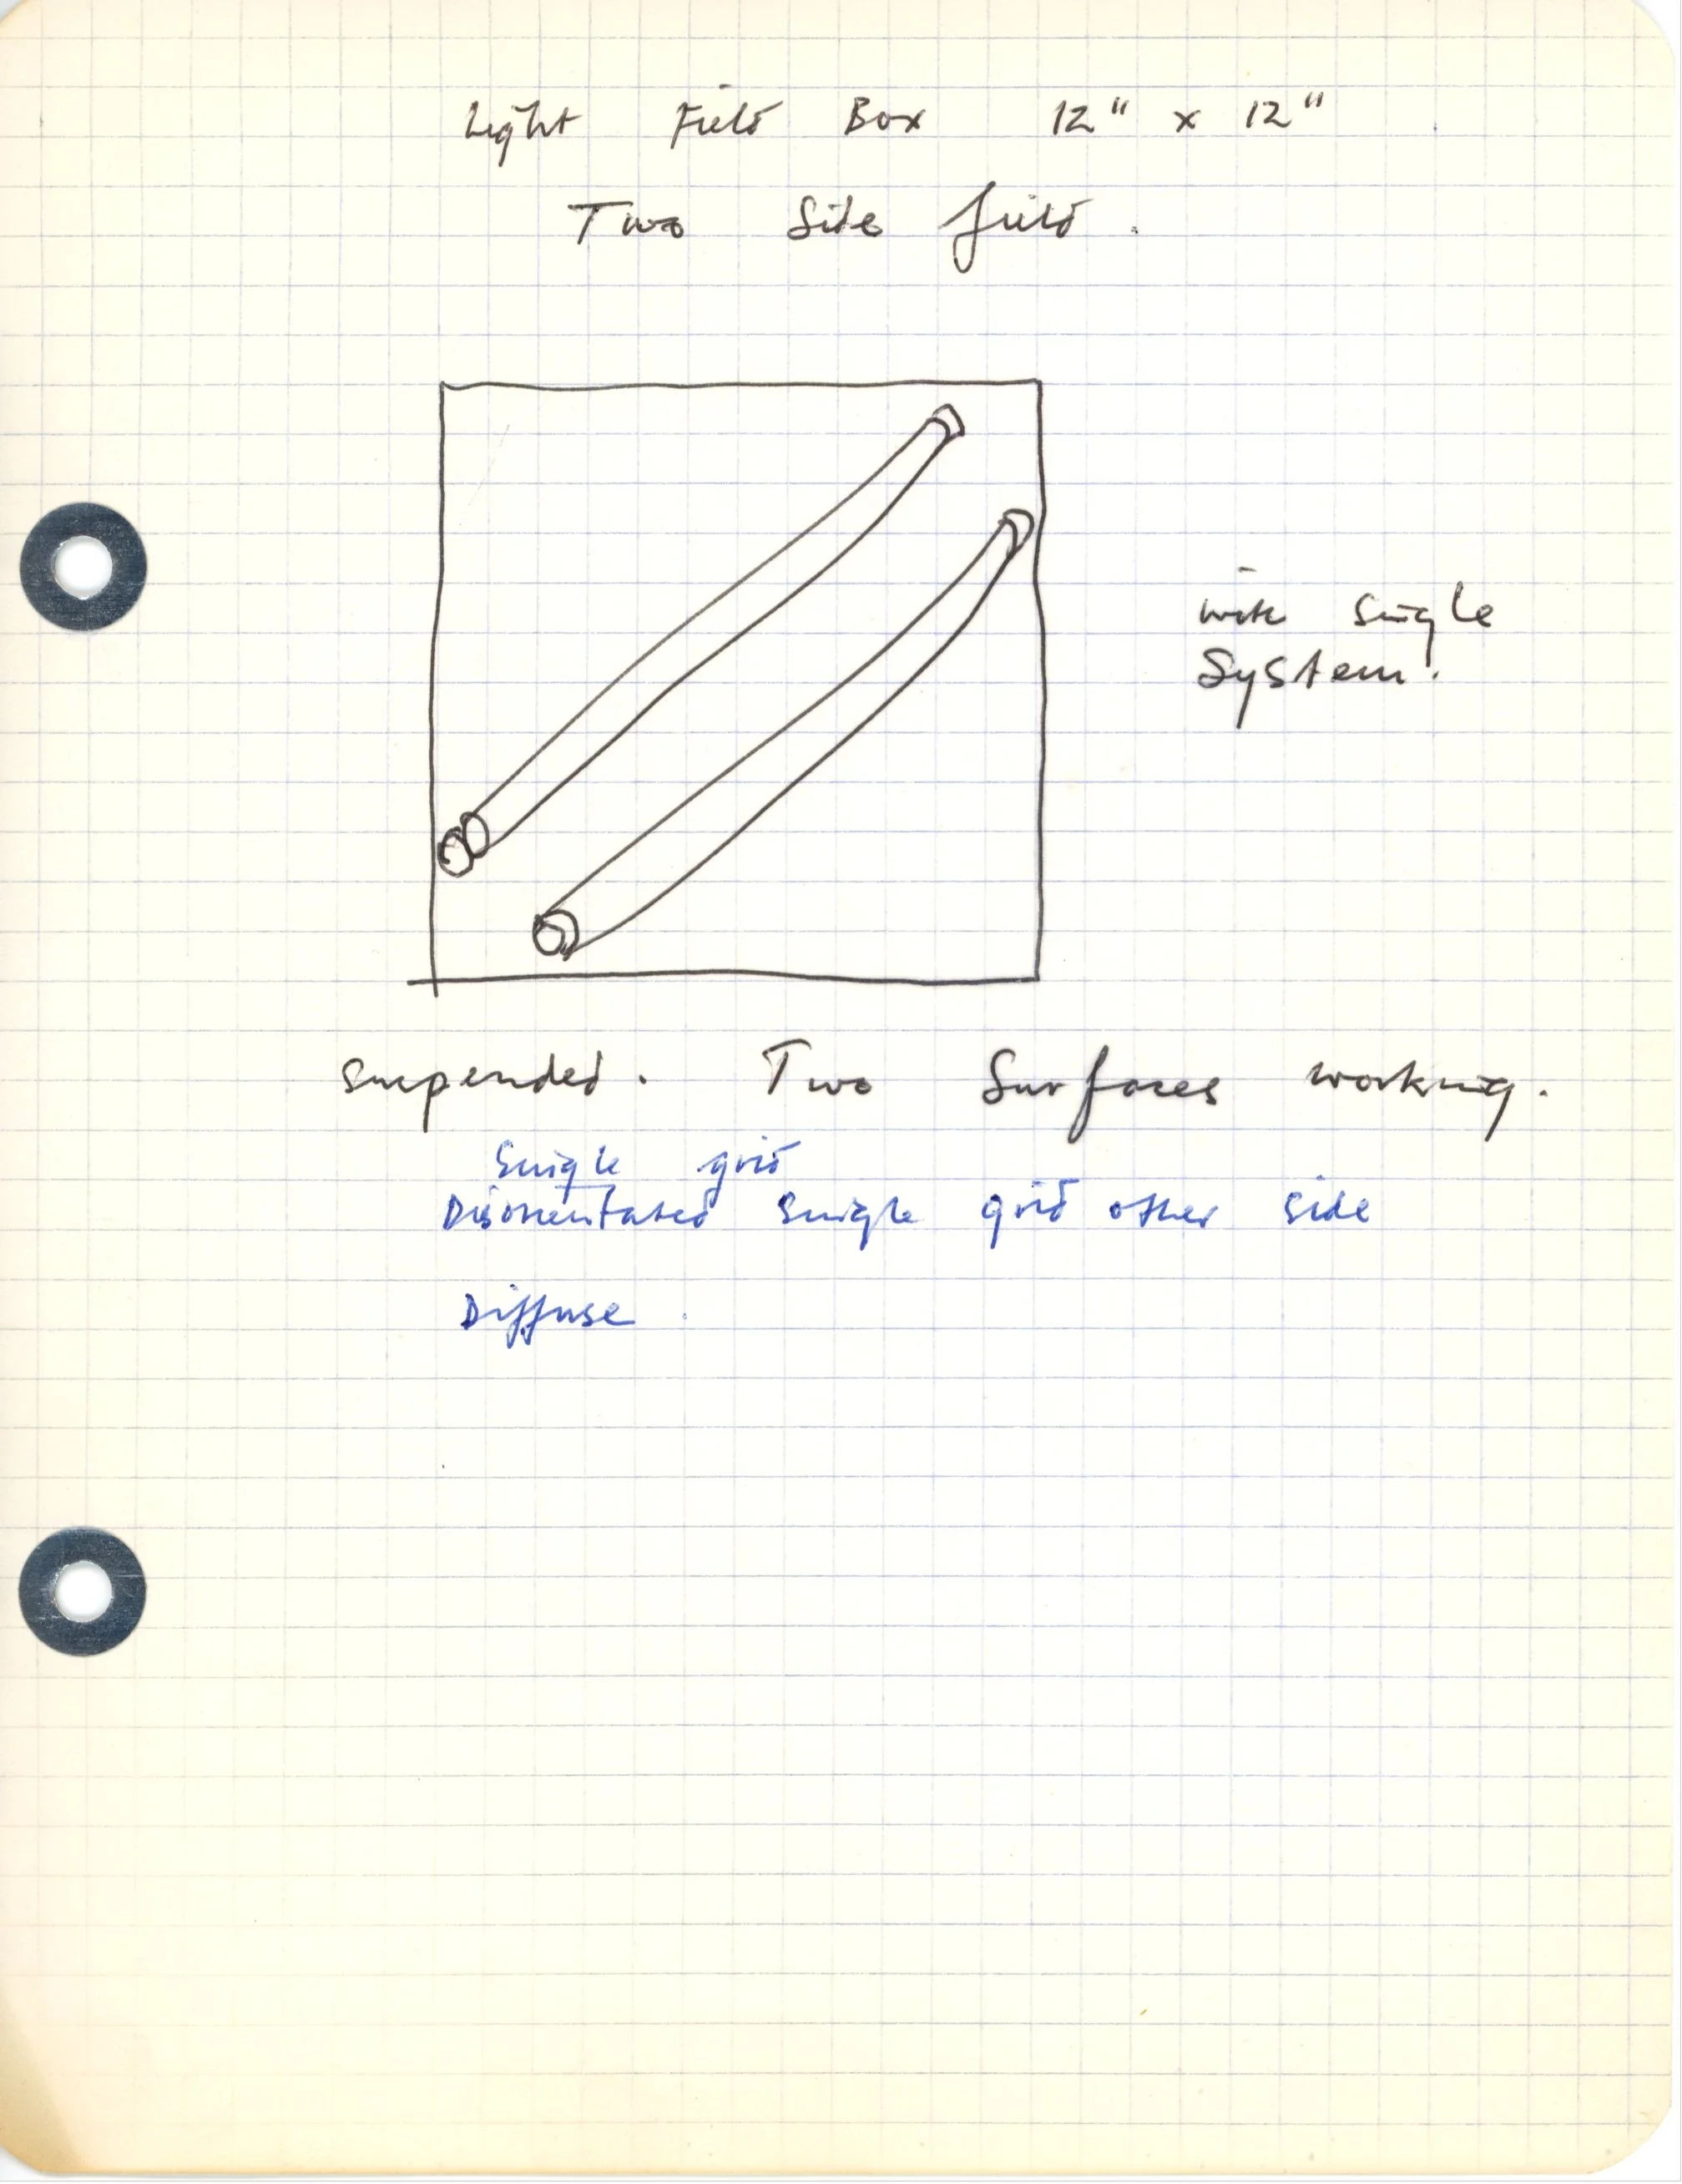 Light Field Box 12" x 12"
Two Side field.
with single
System.
suspended. Two Surfaces working.
Single grid
Disorientated single grid other side
Diffuse.